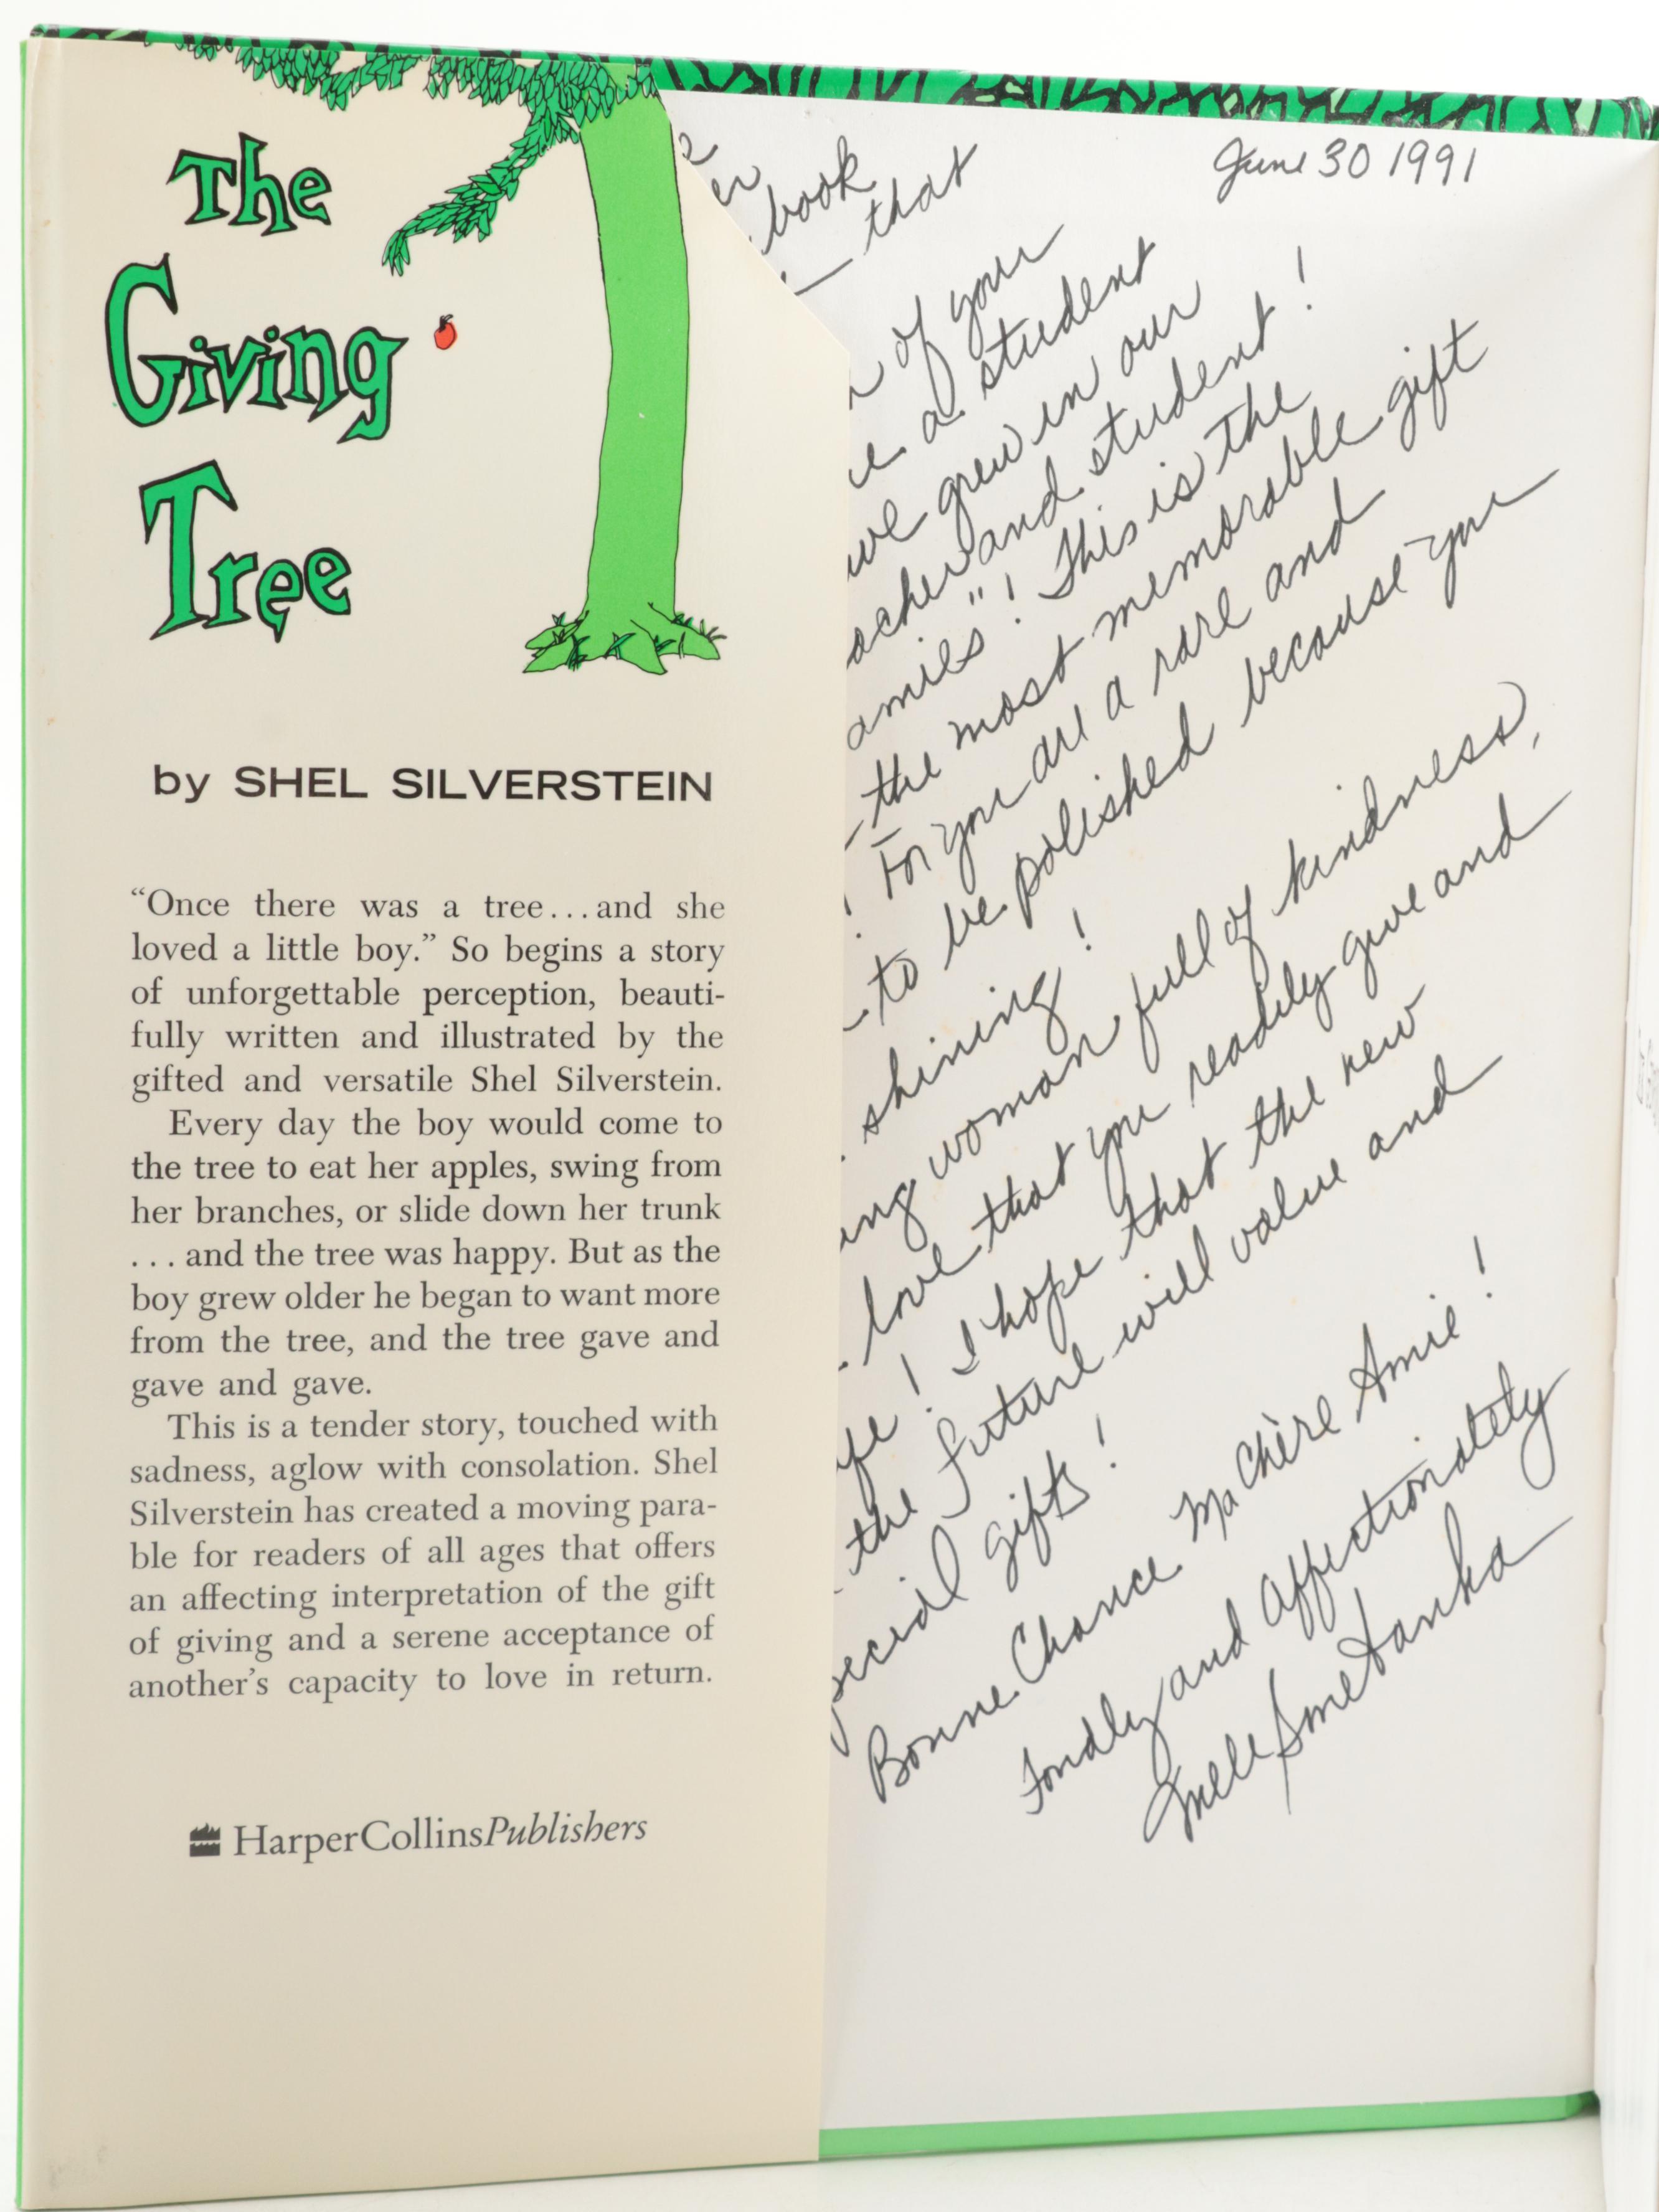 The
Giving
Tree
by SHEL SILVERSTEIN
“Once there was a tree...and she
loved a little boy.” So begins a story
of unforgettable perception, beauti-
fully written and illustrated by the
gifted and versatile Shel Silverstein.
Every day the boy would come to
the tree to eat her apples, swing from
her branches, or slide down her trunk
...and the tree was happy. But as the
boy grew older he began to want more
from the tree, and the tree gave and
gave and gave.
This is a tender story, touched with
sadness, aglow with consolation. Shel
Silverstein has created a moving para-
ble for readers of all ages that offers
an affecting interpretation of the gift
of giving and a serene acceptance of
another’s capacity to love in return.
HarperCollinsPublishers
June 30 1991
book
that
of your
a student
we grew in our
and student!
amies"! This is the
the most memorable gift
! For you are a rare and
to be polished because you
shining!
woman full of kindness,
love that you readily give and
! I hope that the new
the future will value and
gifts!
Bonne Chance Ma Chère Amie!
Fondly and affectionately